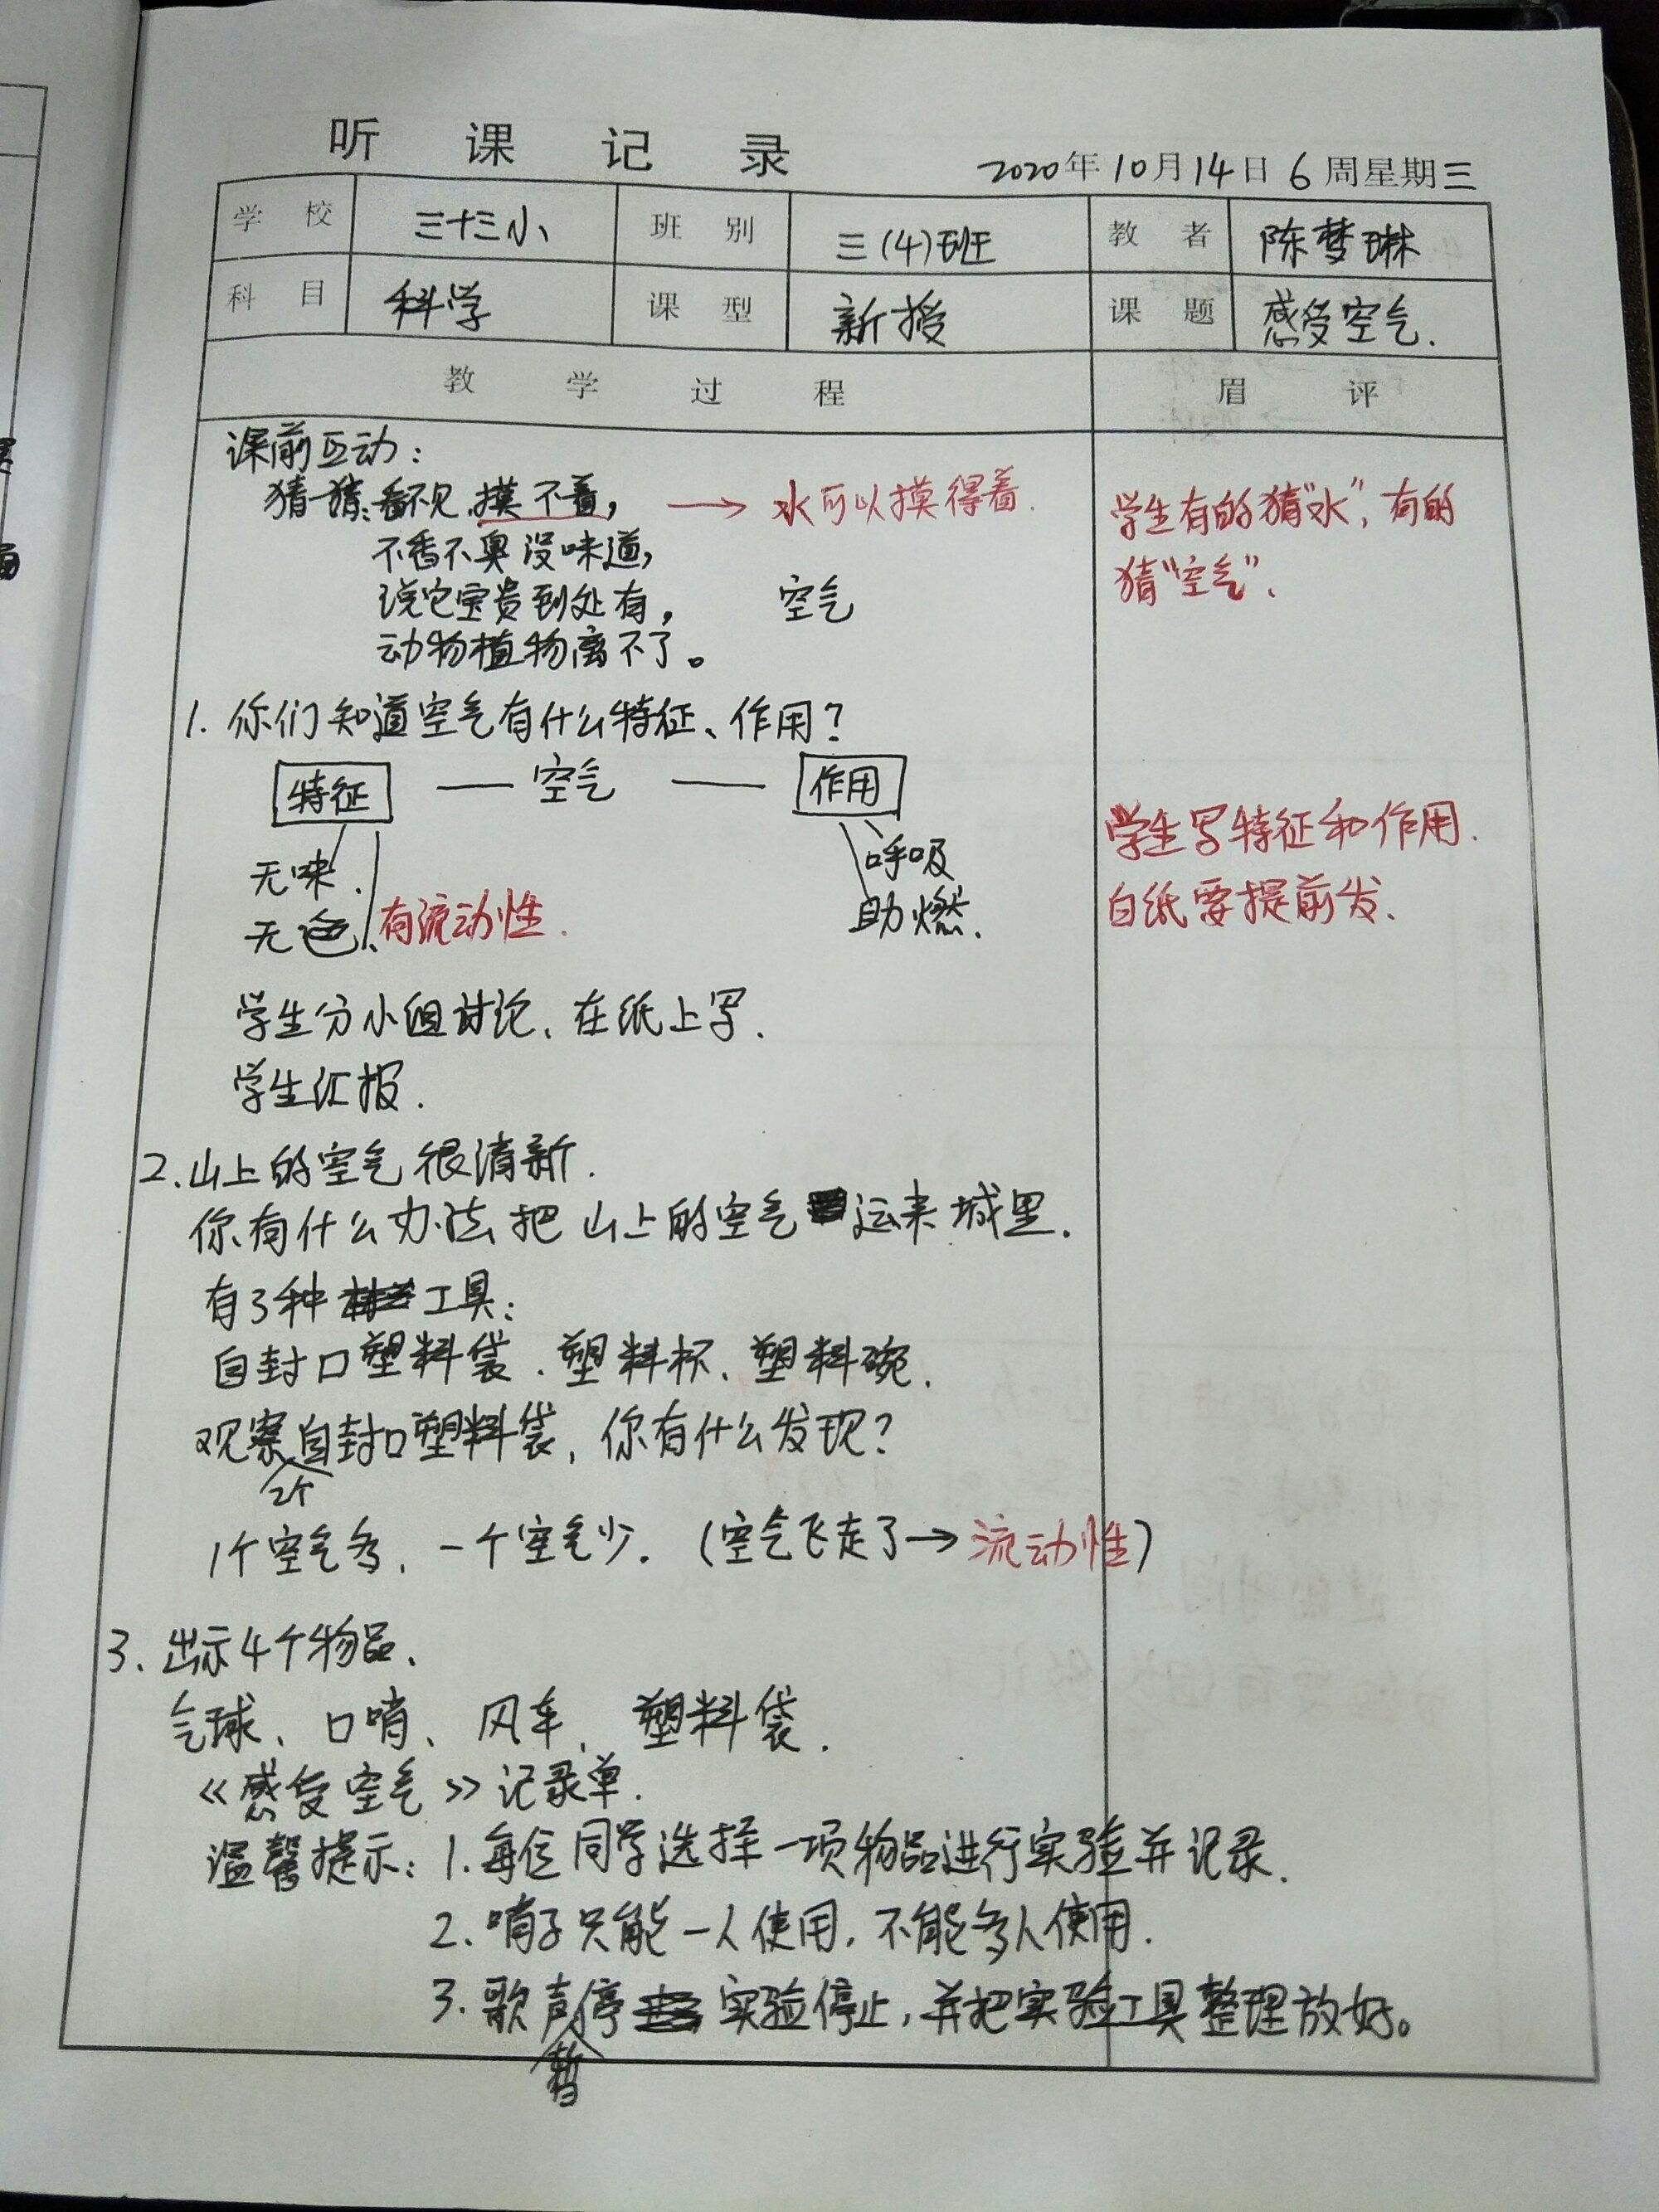 听课记录
2020年10月14日6周星期三
学校 三十三小 班别 三(4)班 教者 陈梦琳
科目 科学 课型 新授 课题 感受空气.
教学过程 眉评
课前互动:
猜一猜:看不见,摸不着, → 水可以摸得着. 学生有的猜“水”,有的
不香不臭没味道, 猜“空气”.
说它宝贵到处有, 空气
动物植物离不了。
1. 你们知道空气有什么特征、作用?
特征 — 空气 — 作用
学生写特征和作用.
无味. 呼吸
无色、有流动性. 助燃. 白纸要提前发.
学生分小组讨论,在纸上写.
学生汇报.
2.山上的空气很清新.
你有什么办法把山上的空气运来城里.
有3种工具:
自封口塑料袋、塑料杯、塑料碗.
观察2个自封口塑料袋,你有什么发现?
1个空气多,一个空气少.(空气飞走了→流动性)
3、出示4个物品、
气球、口哨、风车、塑料袋.
《感受空气》记录单.
温馨提示:1.每位同学选择一项物品进行实验并记录.
2、哨子只能一人使用,不能多人使用.
3.歌声暂停实验停止,并把实验工具整理放好。